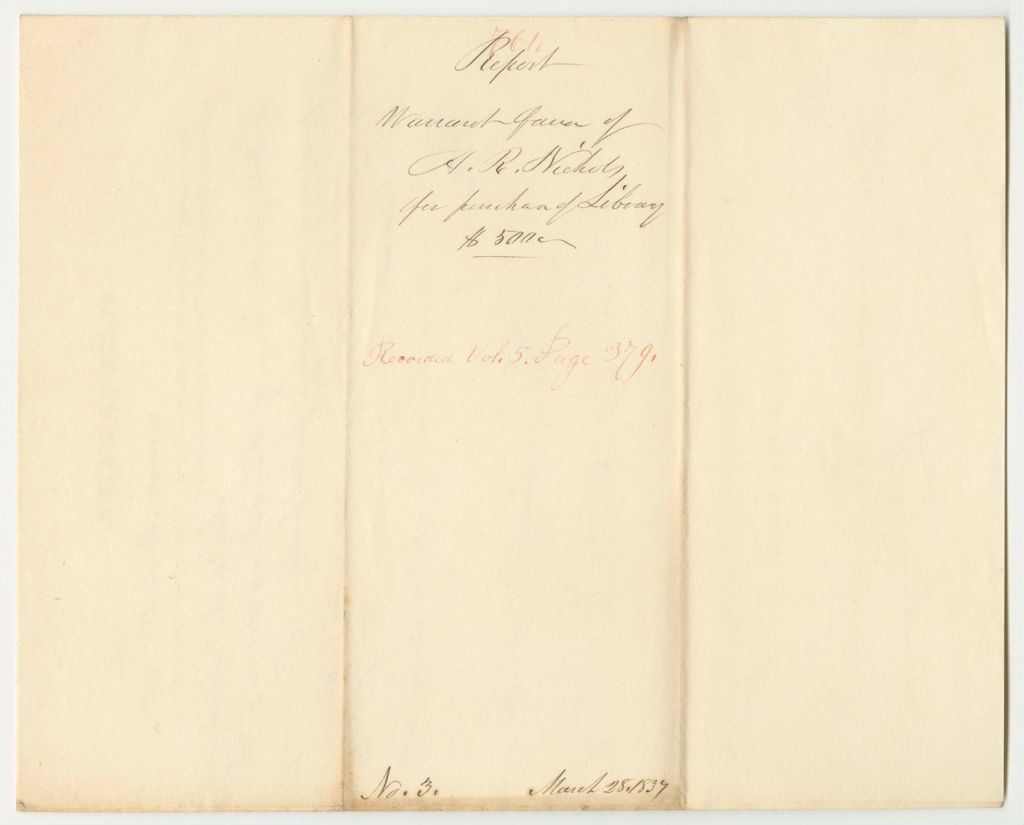 761.
Report
Warrant favor of
A. R. Nichols
for purchase of Library
$ 500
Recorded Vol. 5. Page 379.
No. 3. March 28. 1837